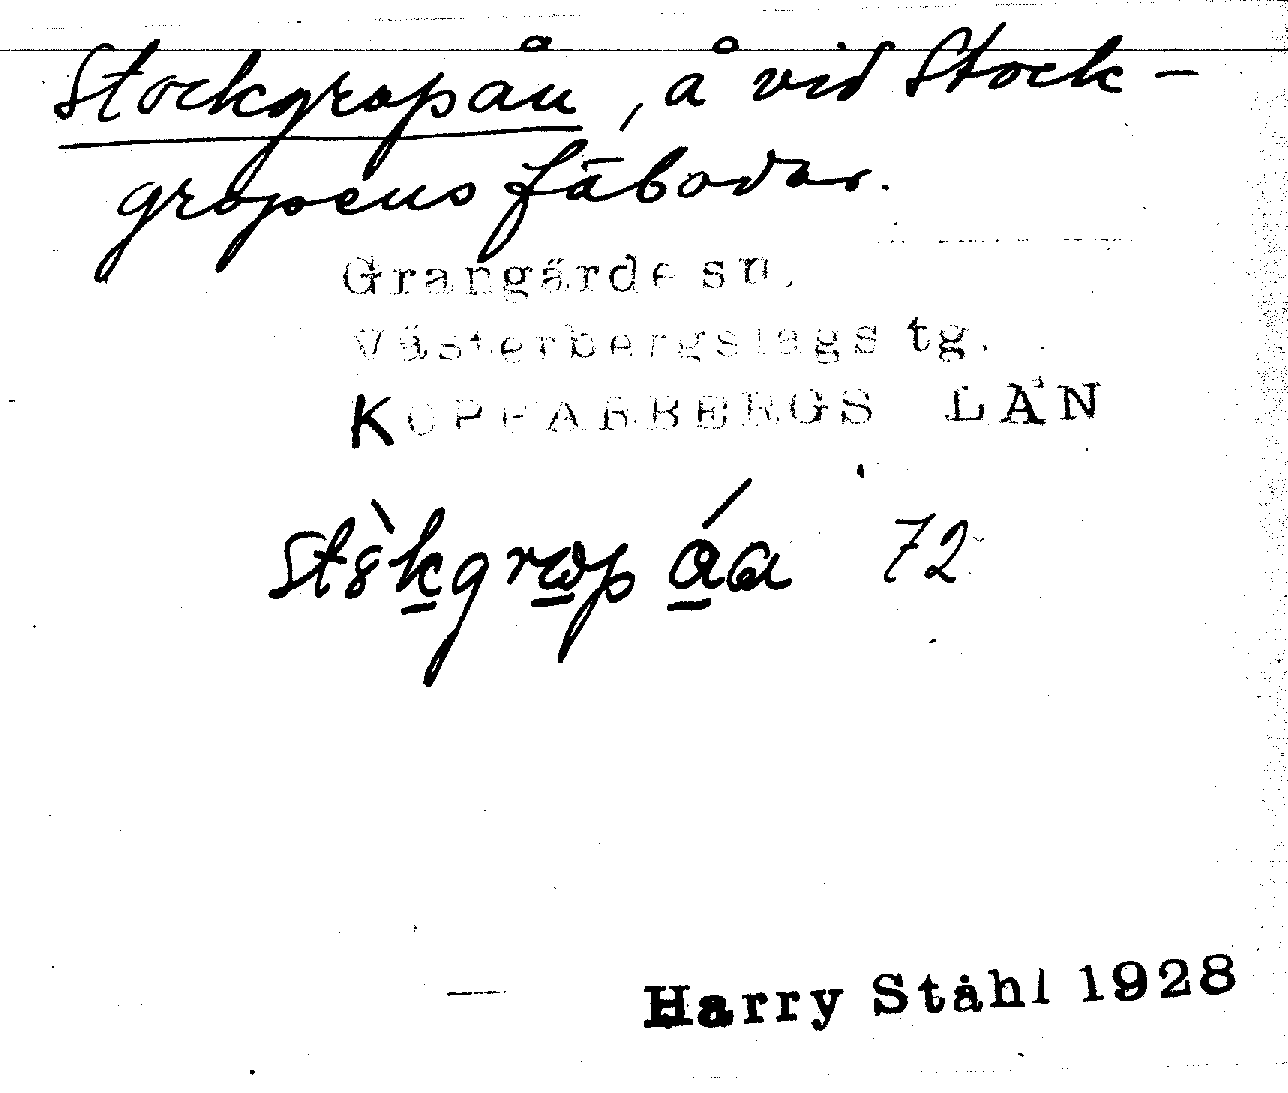 Stockgropån, å vid Stock-
gropens fäbodar.
Grangärde sn.
Västerbergslags tg.
KOPPARBERGS LÄN
72
Harry Ståhl 1928